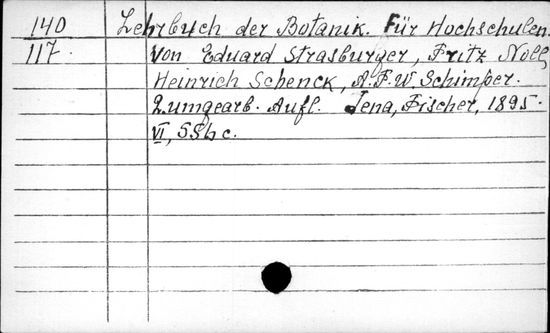 140 Lehrbuch der Botanik. Für Hochschulen.
117. Von Eduard Strasburger, Fritz Noll,
Heinrich Schenck, A.F.W. Schimper.
2.umgearb. Aufl. Jena, Fischer, 1895.
VI, 556 c.